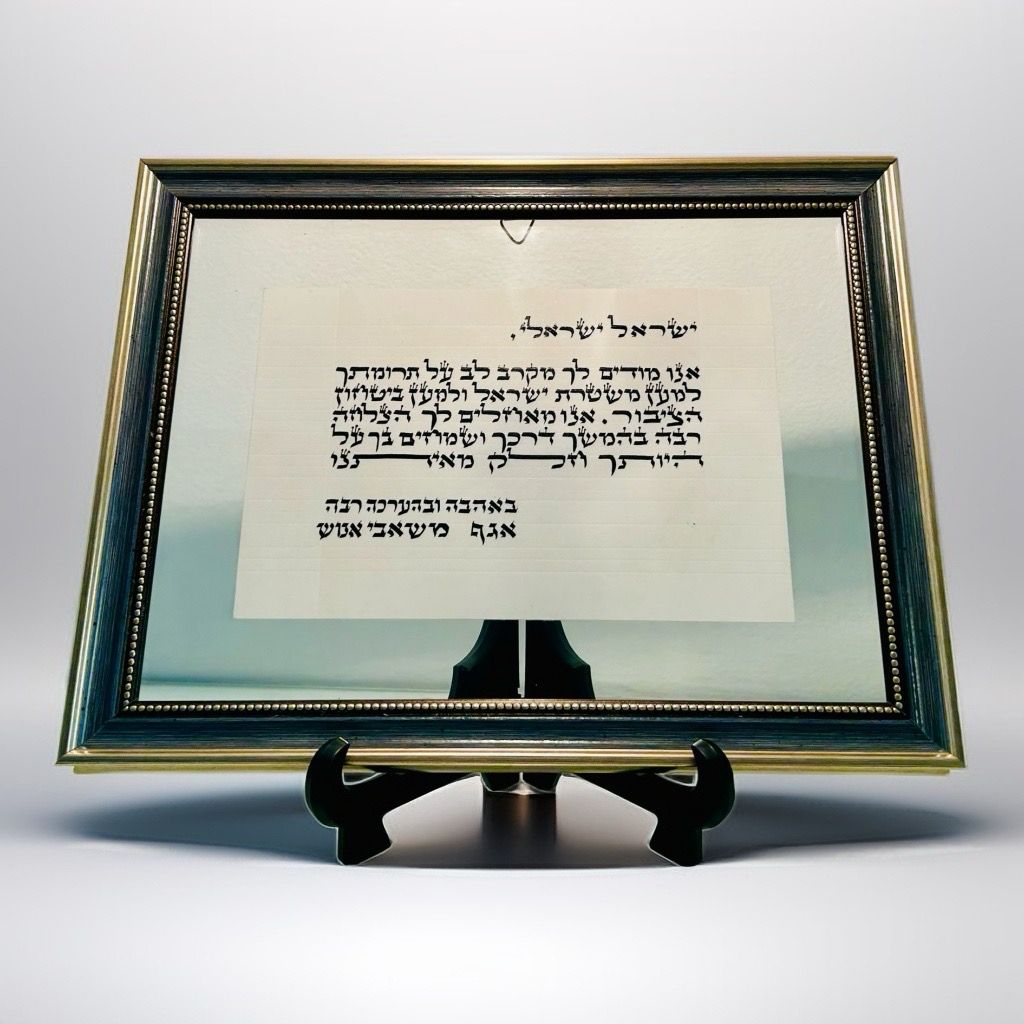 ישראל ישראלי,
אנו מודים לך מקרב לב על תרומתך
למען משטרת ישראל ולמען ביטחון
הציבור. אנו מאחלים לך הצלחה
רבה בהמשך דרכך ושמחים בך על
היותך חלק מאיתנו
באהבה ובהערכה רבה
אגף משאבי אנוש